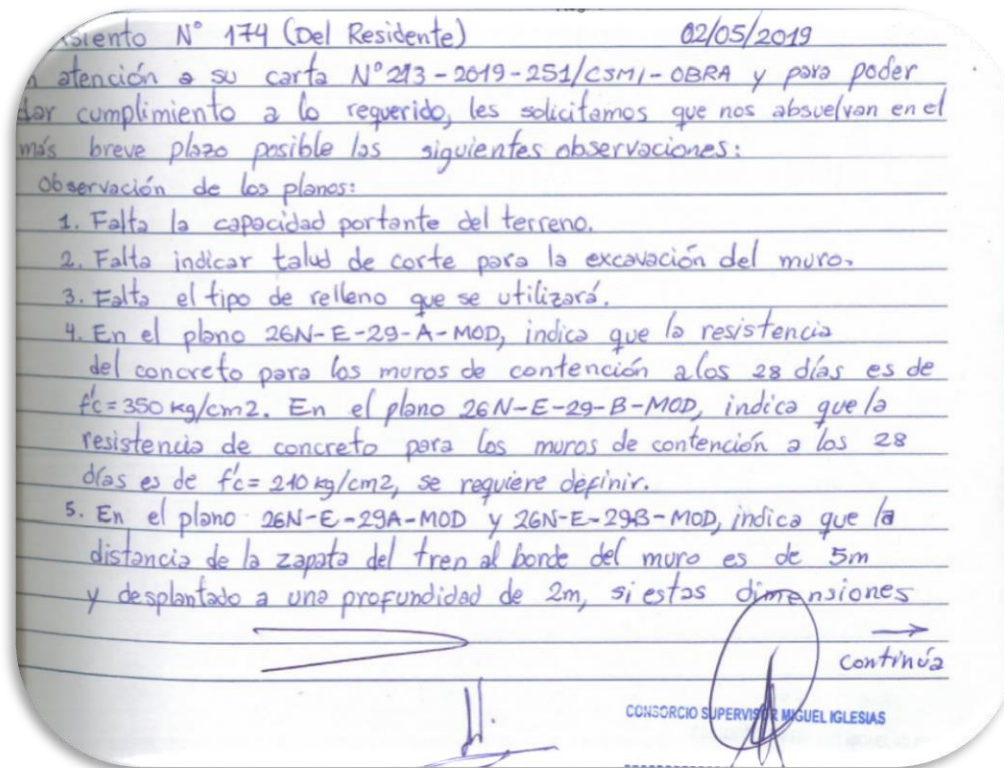 siento N° 174 (Del Residente) 02/05/2019
n atención a su carta N°213-2019-251/CSMI-OBRA y para poder
dar cumplimiento a lo requerido, les solicitamos que nos absuelvan en el
más breve plazo posible las siguientes observaciones:
Observación de los planos:
1. Falta la capacidad portante del terreno.
2. Falta indicar talud de corte para la excavación del muro.
3. Falta el tipo de relleno que se utilizará.
4. En el plano 26N-E-29-A-MOD, indica que la resistencia
del concreto para los muros de contención a los 28 días es de
f'c=350 kg/cm2. En el plano 26N-E-29-B-MOD, indica que la
resistencia de concreto para los muros de contención a los 28
días es de f'c= 210 kg/cm2, se requiere definir.
5. En el plano 26N-E-29A-MOD y 26N-E-29B-MOD, indica que la
distancia de la zapata del tren al borde del muro es de 5m
y desplantado a una profundidad de 2m, si estas dimensiones
continúa
CONSORCIO SUPERVISOR MIGUEL IGLESIAS